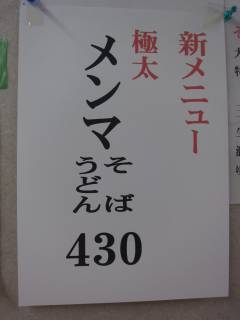 新メニュー
極太
メンマ
そば
うどん
430